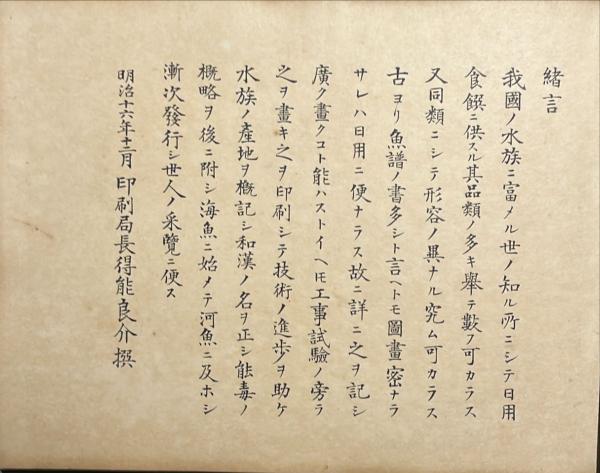 緒言
我國ノ水族ニ富メル世ノ知ル所ニシテ日用
食饌ニ供スル其品類ノ多キ舉テ數フ可カラス
又同類ニシテ形容ノ異ナル究ム可カラス
古ヨリ魚譜ノ書多シト言ヘトモ圖畫密ナラ
サレハ日用ニ便ナラス故ニ詳ニ之ヲ記シ
廣ク畫クコト能ハストイヘトモ工事試驗ノ旁ラ
之ヲ畫キ之ヲ印刷シテ技術ノ進步ヲ助ケ
水族ノ產地ヲ概記シ和漢ノ名ヲ正シ能毒ノ
概略ヲ後ニ附シ海魚ニ始メテ河魚ニ及ホシ
漸次發行シ世人ノ采覽ニ便ス
明治十六年十二月 印刷局長得能良介撰